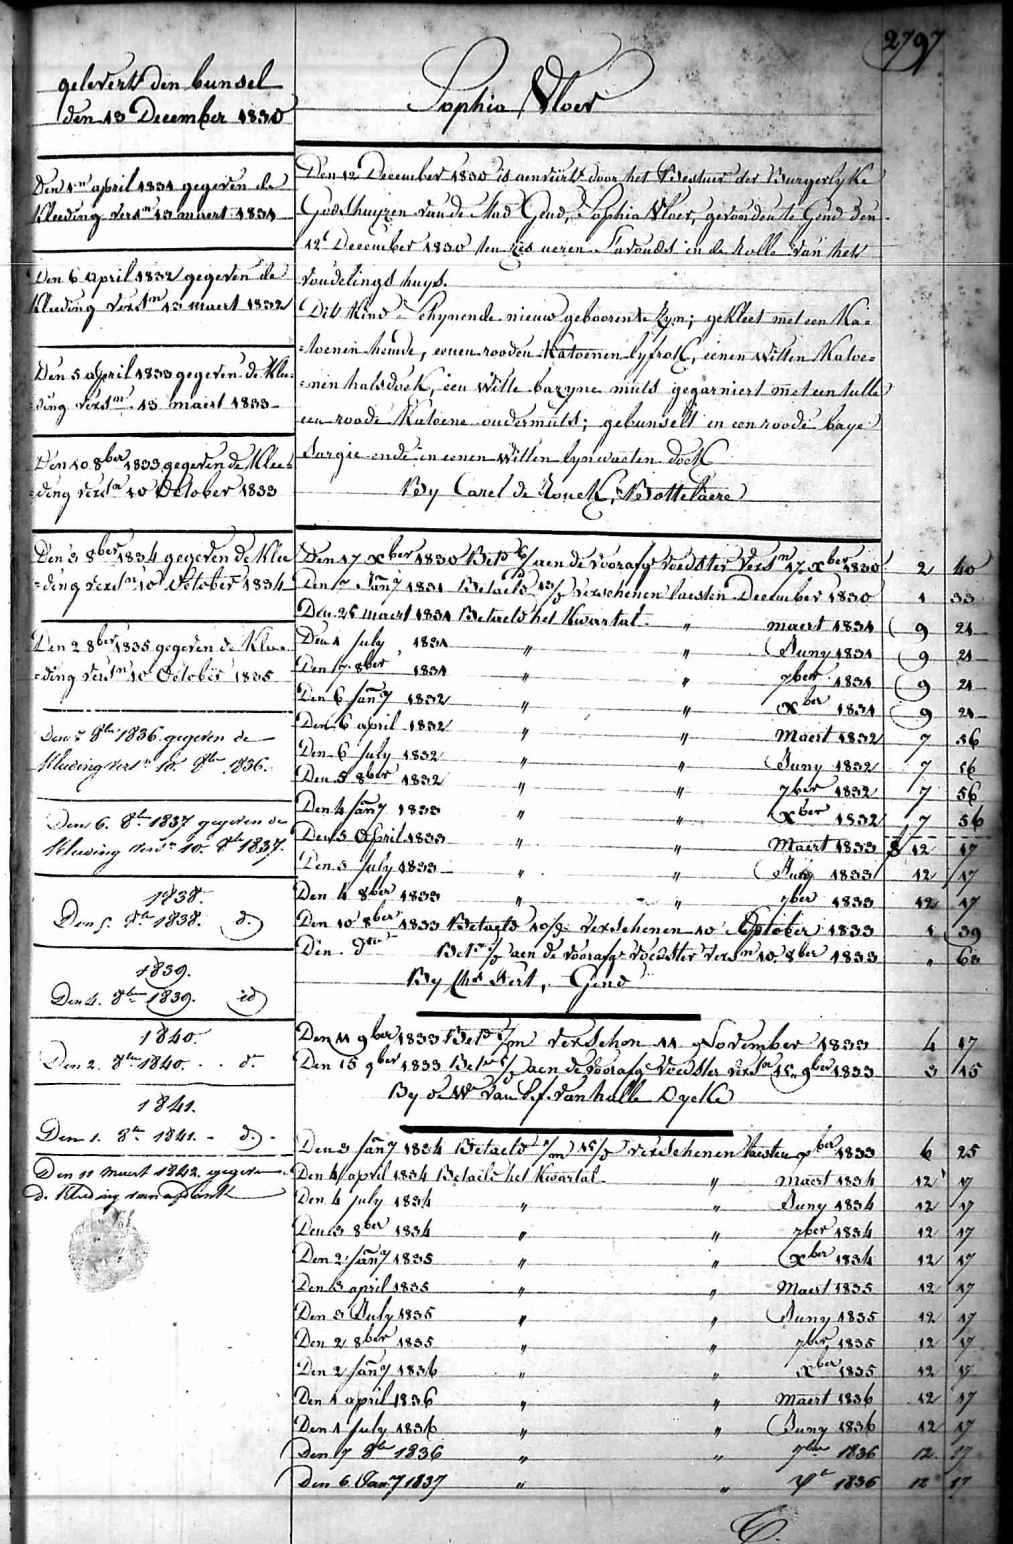 2797
gelevert den bunsel
den 13 December 1830
Sophia Vloer
Den 1n april 1831 gegeven de
Kleeding versn 13 maert 1831
Den 6 April 1832 gegeven de
Kleeding versn 13 maert 1832
Den 5 april 1833 gegeven de Klee-
-ding versn 13 maert 1833
Den 10 8ber 1833 gegeven de Klee-
-ding versn 10 October 1833
Den 3 8ber 1834 gegeven de Klee
-ding versn 10 October 1834
Den 2 8ber 1835 gegeven de Klee-
-ding versn 10 October 1835
Den 7 8ber 1836 gegeven de
Kleeding versn 10 8br 1836.
Den 6. 8br 1837 gegeven de
Kleeding versn 10 8br 1837.
1838.
Den 5. 8br 1838. d.
1839.
Den 4. 8br 1839. id
1840.
Den 2. 8br 1840. d.
1841.
Den 1. 8br 1841. d.
Den 11 maert 1842. gegeven
d. Kleeding
Den 12 December 1830 is aenveird door het Bestuer der Burgerlyke
Godshuyzen van de Stad Gend, Sophia Vloer, gevonden te Gend den
12 December 1830 ten zes ueren s'avonds in de rolle van het
vondelings huys.
Dit Kind schynende nieuw geboorente zyn; gekleet met een Ka-
-toenen hemde, eenen rooden Katoenen lyfrok, eenen Witten Katoe-
-nen halsdoek, een Witte bazyne muts gegarniert met een tulle
een roode Katoene ondermuts; gebunselt in een roode baye
Sargie ende in eenen Witten lynwaeten doek
By Carel de Vonck, Bottelaere
Den 17 Xber 1830 Betd aen de voorafge voedster versn 17 Xber 1830 2 40
Den 7 Jany 1831 Betaeld 13/d verschenen laesten December 1830 1 33
Den 25 maert 1831 Betaeld het Kwartal " maert 1831 9 21
Den 1 July 1831 " " Juny 1831 9 21
Den 7 8ber 1831 " " 7ber 1831 9 21
Den 6 Jany 1832 " " Xber 1831 9 21
Den 6 april 1832 " " Maert 1832 7 56
Den 6 July 1832 " " Juny 1832 7 56
Den 5 8ber 1832 " " 7ber 1832 7 56
Den 4 Jany 1833 " " Xber 1832 7 56
Den 5 April 1833 " " Maert 1833 12 17
Den 5 July 1833 " " Juny 1833 12 17
Den 4 8ber 1833 " " 7ber 1833 12 17
Den 10 8ber 1833 Betaeld 10/d verschenen 10 October 1833 1 39
Den do Betd aen de voorafge voedster versn 10 8ber 1833 " 63
By Chs Aert, Gend
Den 11 9ber 1833 Betd 1/m verschen 11 November 1833 4 17
Den 15 9ber 1833 Betd aen de voorafge voedster versn 15 9ber 1833 3 15
By de We van L.f. vanhulle Dycke
Den 3 Jany 1834 Betaeld 1/m 15/d verschenen laesten Xber 1833 6 25
Den 4 april 1834 Betaeld het Kwartal " Maert 1834 12 17
Den 4 July 1834 " " Juny 1834 12 17
Den 3 8ber 1834 " " 7ber 1834 12 17
Den 2 Jany 1835 " " Xber 1834 12 17
Den 3 april 1835 " " Maert 1835 12 17
Den 3 July 1835 " " Juny 1835 12 17
Den 2 8ber 1835 " " 7ber 1835 12 17
Den 2 Jany 1836 " " Xber 1835 12 17
Den 1 april 1836 " " Maert 1836 12 17
Den 1 July 1836 " " Juny 1836 12 17
Den 7 8br 1836 " " 7br 1836 12 17
Den 6 Jany 1837 " " Xr 1836 12 17